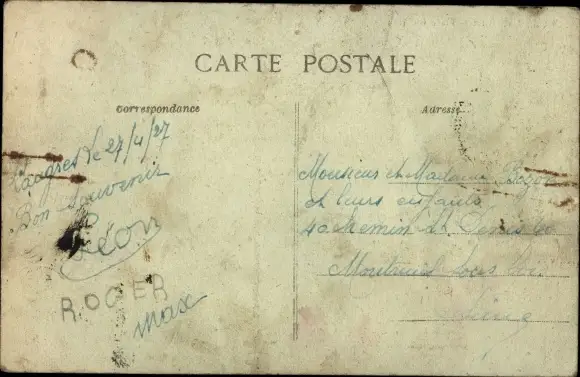 CARTE POSTALE
Correspondance
Adresse
Langres le 27/4/27
Bon souvenir
Léon
ROGER
Max
Monsieur et Madame
et leurs enfants
40 chemin St Denis
Montreuil sous Bois
Seine